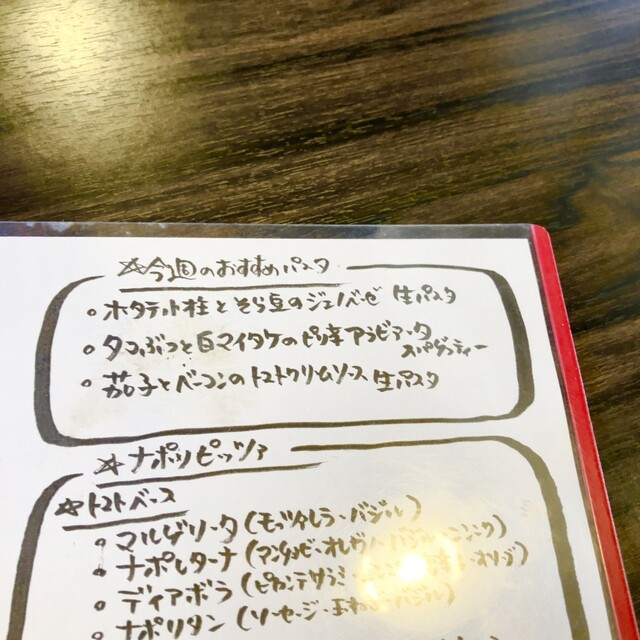 ☆今週のおすすめパスタ
◦ホタテ小柱とそら豆のジェノベーゼ 生パスタ
◦タコぶつと白マイタケのピリ辛アラビアータ
スパゲッティー
◦茄子とベーコンのトマトクリームソース 生パスタ
☆ナポリピッツァ
☆トマトベース
◦マルゲリータ(モッツァレラ・バジル)
◦ナポレターナ(アンチョビ・オレガノ・バジル・ニンニク)
◦ディアボラ(ピカンテサラミ・オリーブ)
◦ナポリタン(ソーセージ・玉ねぎ・バジル)